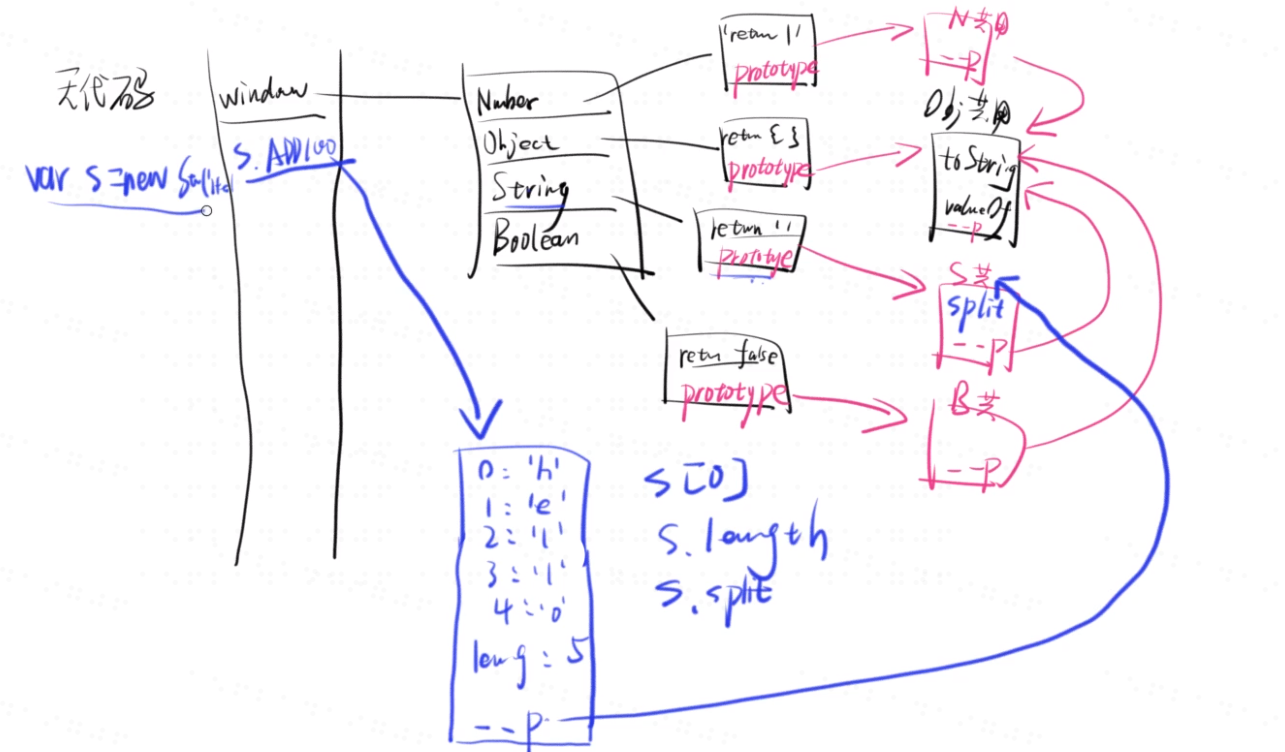 无代码
window
s.ADD100
var s=new
Number
Object
String
Boolean
'return 1'
prototype
return { }
prototype
return ''
prototye
retun false
prototype
N共
--p
Obj共
toString
valueOf
--p
S共
split
--p
B共
--p
0: 'h'
1: 'e'
2: 'l'
3: 'l'
4: 'o'
leng: 5
--p
s[0]
s.length
s.split